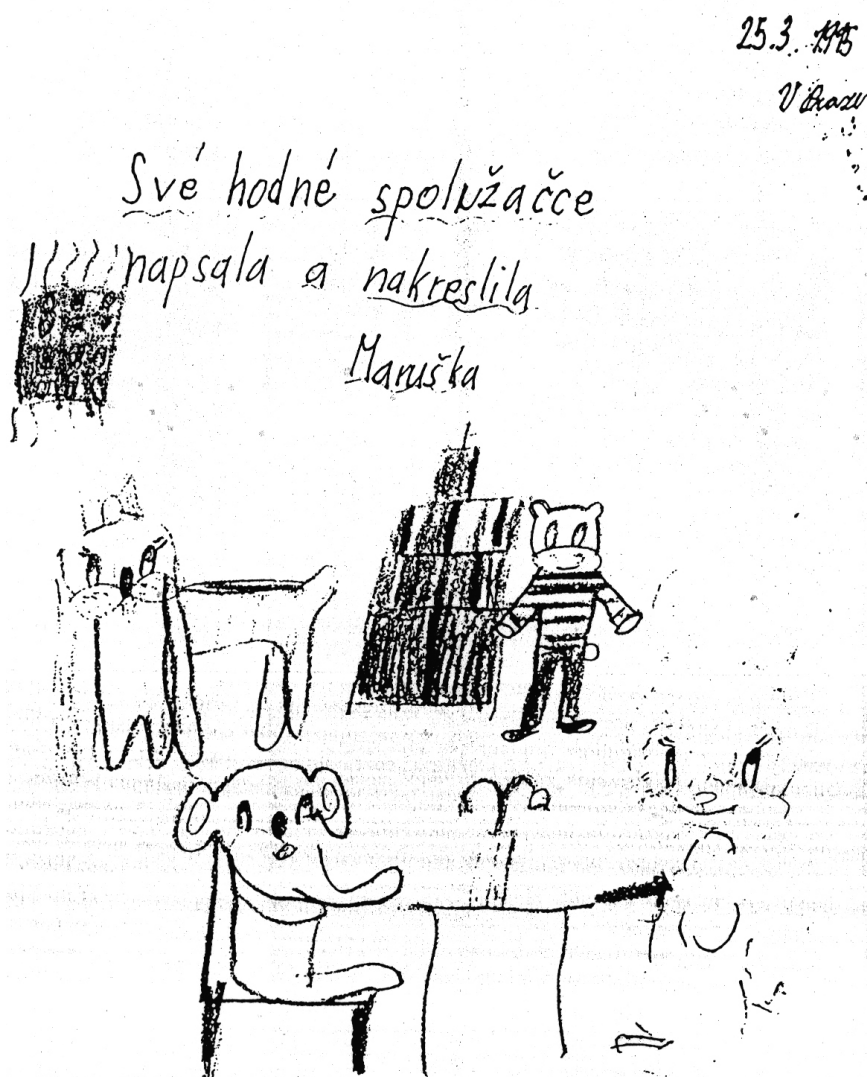 25.3. 1995
V Praze
Své hodné spolužačce
napsala a nakreslila
Maruška